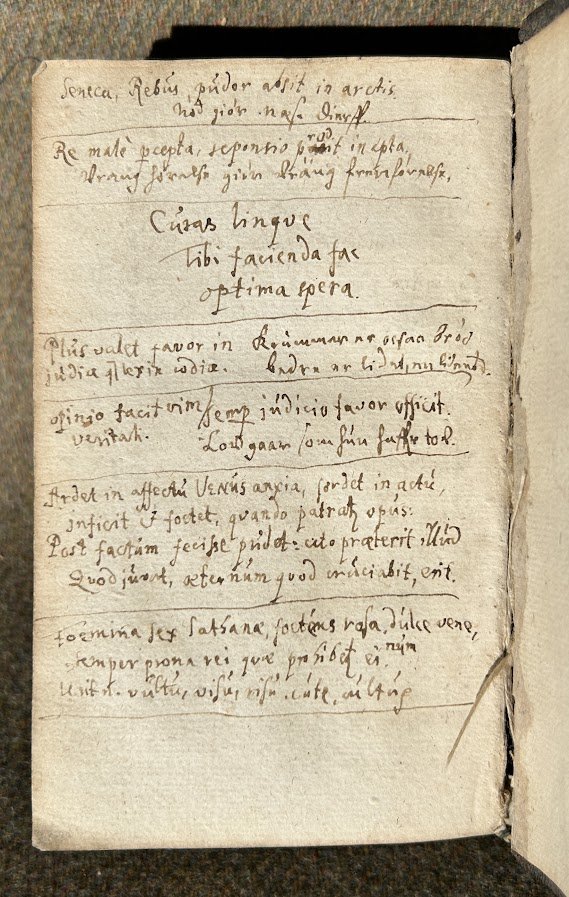 Seneca, Rebus, pudor absit in arctis.
Nöd giör næse
Re malè pcepta, responsio pdit inepta,
Vrang hörelse giör vrang fremförelse.
Curas linque
Tibi facienda fac
optima spera.
Plus valet favor in
judice lexix codice.
Krummar er
bedre er lidet,
opinio facit vim
veritati.
semp judicio favor officit.
Low gaar som hun haffr
Ardet in affectu VENUS anxia, sordet in actu,
inficit & foetet, quando patratq opus:
Post factum fecisse pudet: cito præterit illud
Quod juvat, æternum quod cruciabit, erit.
Foemina fex Sathanæ, foetens rosa, dulce vene,
num
semper prona rei quæ prohibetq ei.
Urit vultu, visu, risu, cute, cultuq